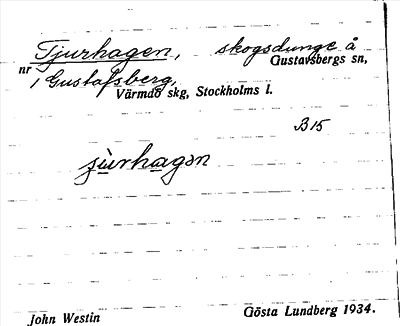 Tjurhagen, skogsdunge å
nr 1 Gustafsberg, Gustavsbergs sn,
Värmdö skg, Stockholms l.
B15
jùrhagən
John Westin Gösta Lundberg 1934.